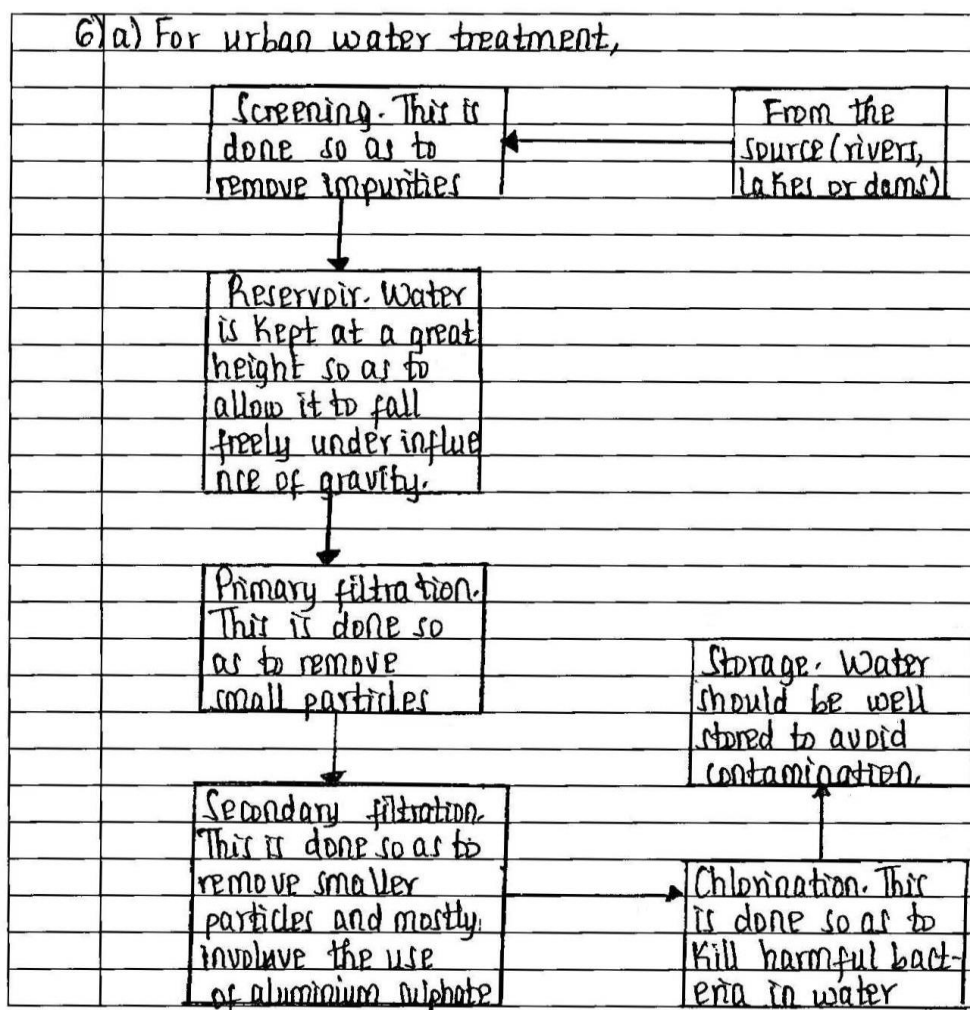 6) a) For urban water treatment,
From the
source (rivers,
lakes or dams)
Screening. This is
done so as to
remove impurities
Reservoir. Water
is kept at a great
height so as to
allow it to fall
freely under influe
nce of gravity.
Primary filtration.
This is done so
as to remove
small particles
Secondary filtration.
This is done so as to
remove smaller
particles and mostly
involuve the use
of aluminium sulphate
Chlorination. This
is done so as to
kill harmful bact-
eria in water
Storage. Water
should be well
stored to avoid
contamination.